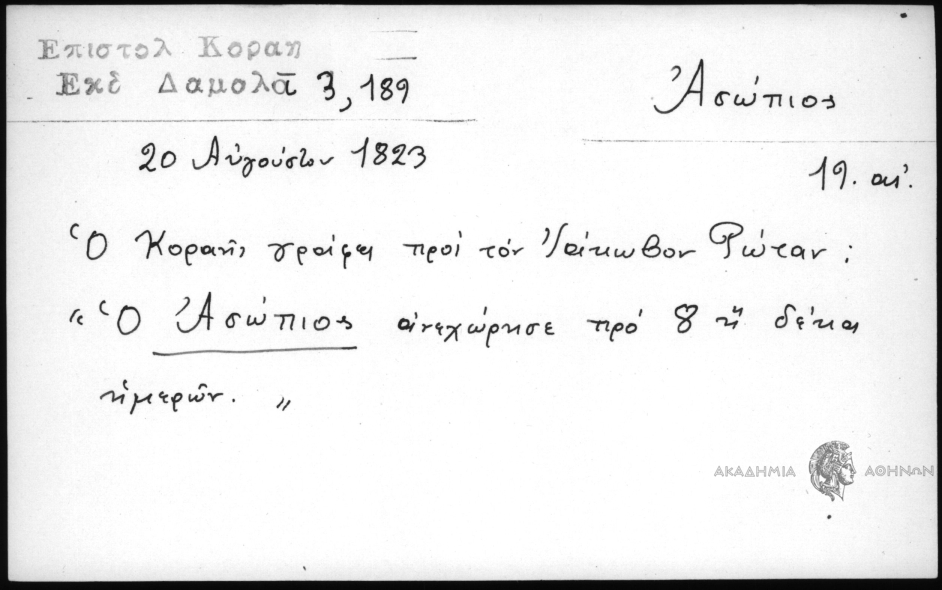 Επιστολ Κοραη
Εκδ Δαμολᾶ 3, 189
Ἀσώπιος
20 Αὐγούστου 1823
19. αι΄.
Ὁ Κοραῆς γράφει πρὸς τὸν Ἰάκωβον Ρώταν :
« Ὁ Ἀσώπιος ἀνεχώρησε πρὸ 8 ἢ δέκα
ἡμερῶν. »
ΑΚΑΔΗΜΙΑ ΑΘΗΝΩΝ